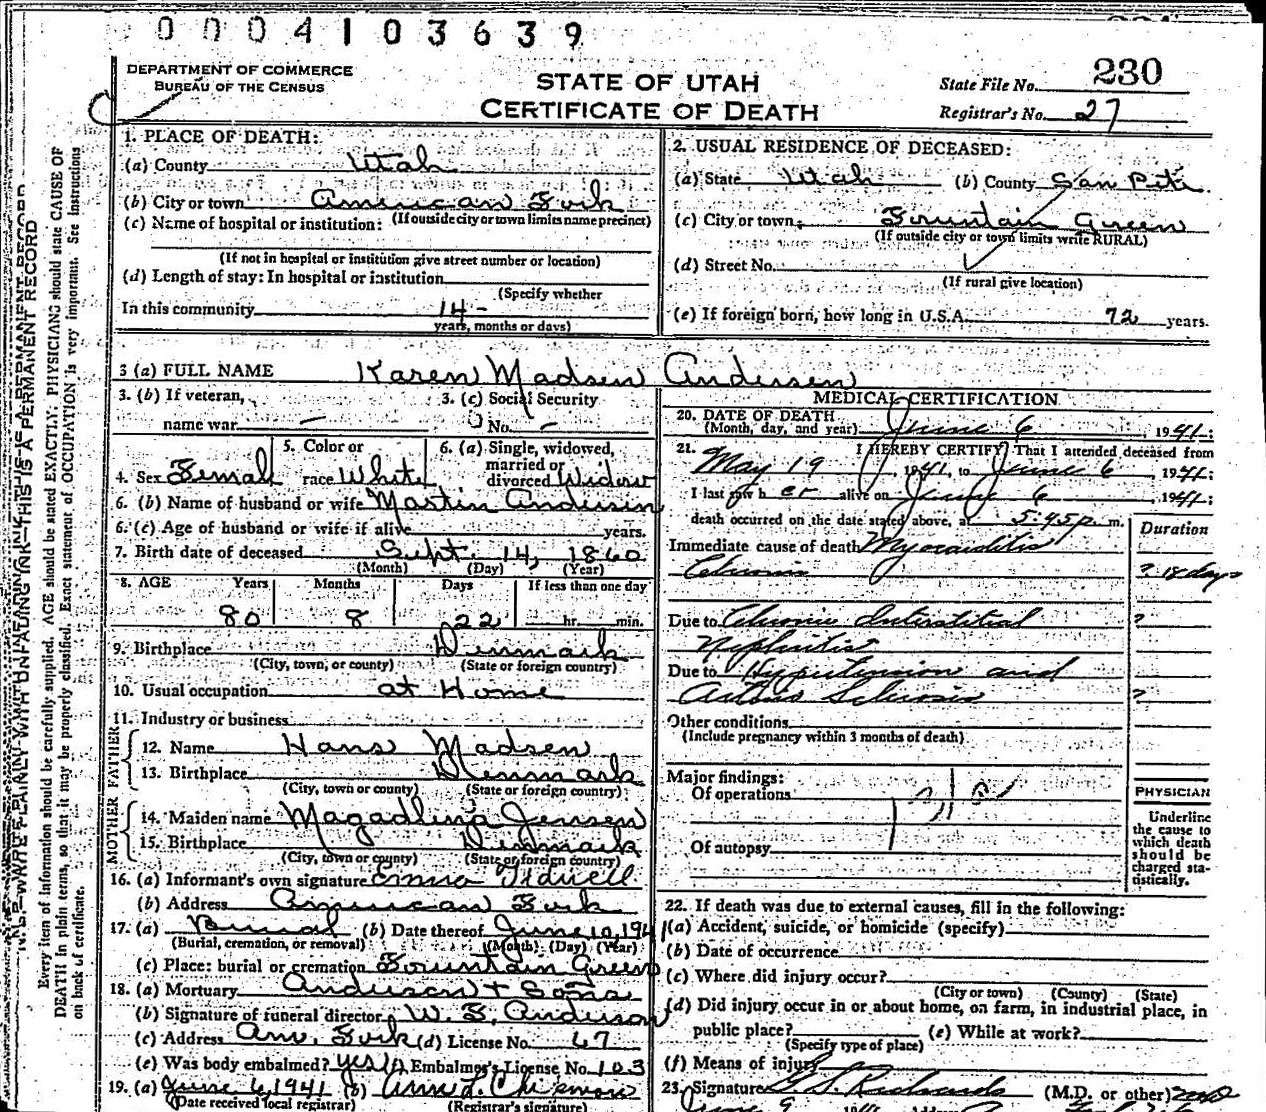 0004103639
DEPARTMENT OF COMMERCE
BUREAU OF THE CENSUS
STATE OF UTAH
CERTIFICATE OF DEATH
State File No. 230
Registrar's No. 27
WRITE PLAINLY WITH UNFADING INK—THIS IS A PERMANENT RECORD
Every item of information should be carefully supplied. AGE should be stated EXACTLY. PHYSICIANS should state CAUSE OF
DEATH in plain terms, so that it may be properly classified. Exact statement of OCCUPATION is very important. See instructions
on back of certificate.
1. PLACE OF DEATH:
(a) County Utah
(b) City or town American Fork
(If outside city or town limits name precinct)
(c) Name of hospital or institution:
(If not in hospital or institution give street number or location)
(d) Length of stay: In hospital or institution
(Specify whether
In this community 14 -
years, months or days)
2. USUAL RESIDENCE OF DECEASED:
(a) State Utah (b) County San Pete
(c) City or town Fountain Green
(If outside city or town limits write RURAL)
(d) Street No.
(If rural give location)
(e) If foreign born, how long in U.S.A. 72 years.
3 (a) FULL NAME Karen Madsen Andersen
3. (b) If veteran,
name war —
3. (c) Social Security
No. -
4. Sex Female
5. Color or
race White
6. (a) Single, widowed,
married or
divorced Widow
6. (b) Name of husband or wife Martin Andersen
6. (c) Age of husband or wife if alive years.
7. Birth date of deceased Sept. 14, 1860
(Month) (Day) (Year)
8. AGE Years Months Days If less than one day
80 8 22 hr. min.
9. Birthplace Denmark
(City, town, or county) (State or foreign country)
10. Usual occupation at Home
11. Industry or business
FATHER
12. Name Hans Madsen
13. Birthplace Denmark
(City, town or county) (State or foreign country)
MOTHER
14. Maiden name Magadlina Jensen
15. Birthplace Denmark
(City, town or county) (State or foreign country)
16. (a) Informant's own signature Emma Tidwell
(b) Address American Fork
17. (a) Burial (b) Date thereof June 10, 1941
(Burial, cremation, or removal) (Month) (Day) (Year)
(c) Place: burial or cremation Fountain Green
18. (a) Mortuary Anderson & Sons
(b) Signature of funeral director W. S. Anderson
(c) Address Am. Fork (d) License No. 67
(e) Was body embalmed? yes (f) Embalmer's License No. 103
19. (a) June 6, 1941 (b)
(Date received local registrar) (Registrar's signature)
MEDICAL CERTIFICATION
20. DATE OF DEATH
(Month, day, and year) June 6 1941;
21. I HEREBY CERTIFY That I attended deceased from
May 19 1941, to June 6 1941;
I last saw her alive on June 6 1941;
death occurred on the date stated above, at 5:45 p. m.
Duration
Immediate cause of death Myocarditis
Chronic ? 18 days
Due to Chronic Interstitial ?
Nephritis
Due to Hypertension and
Arterio Sclerosis ?
Other conditions
(Include pregnancy within 3 months of death)
Major findings:
Of operations
Of autopsy
PHYSICIAN
Underline
the cause to
which death
should be
charged sta-
tistically.
22. If death was due to external causes, fill in the following:
(a) Accident, suicide, or homicide (specify)
(b) Date of occurrence
(c) Where did injury occur?
(City or town) (County) (State)
(d) Did injury occur in or about home, on farm, in industrial place, in
public place? (e) While at work?
(Specify type of place)
(f) Means of injury
23. Signature Richards (M.D. or other)
June 9